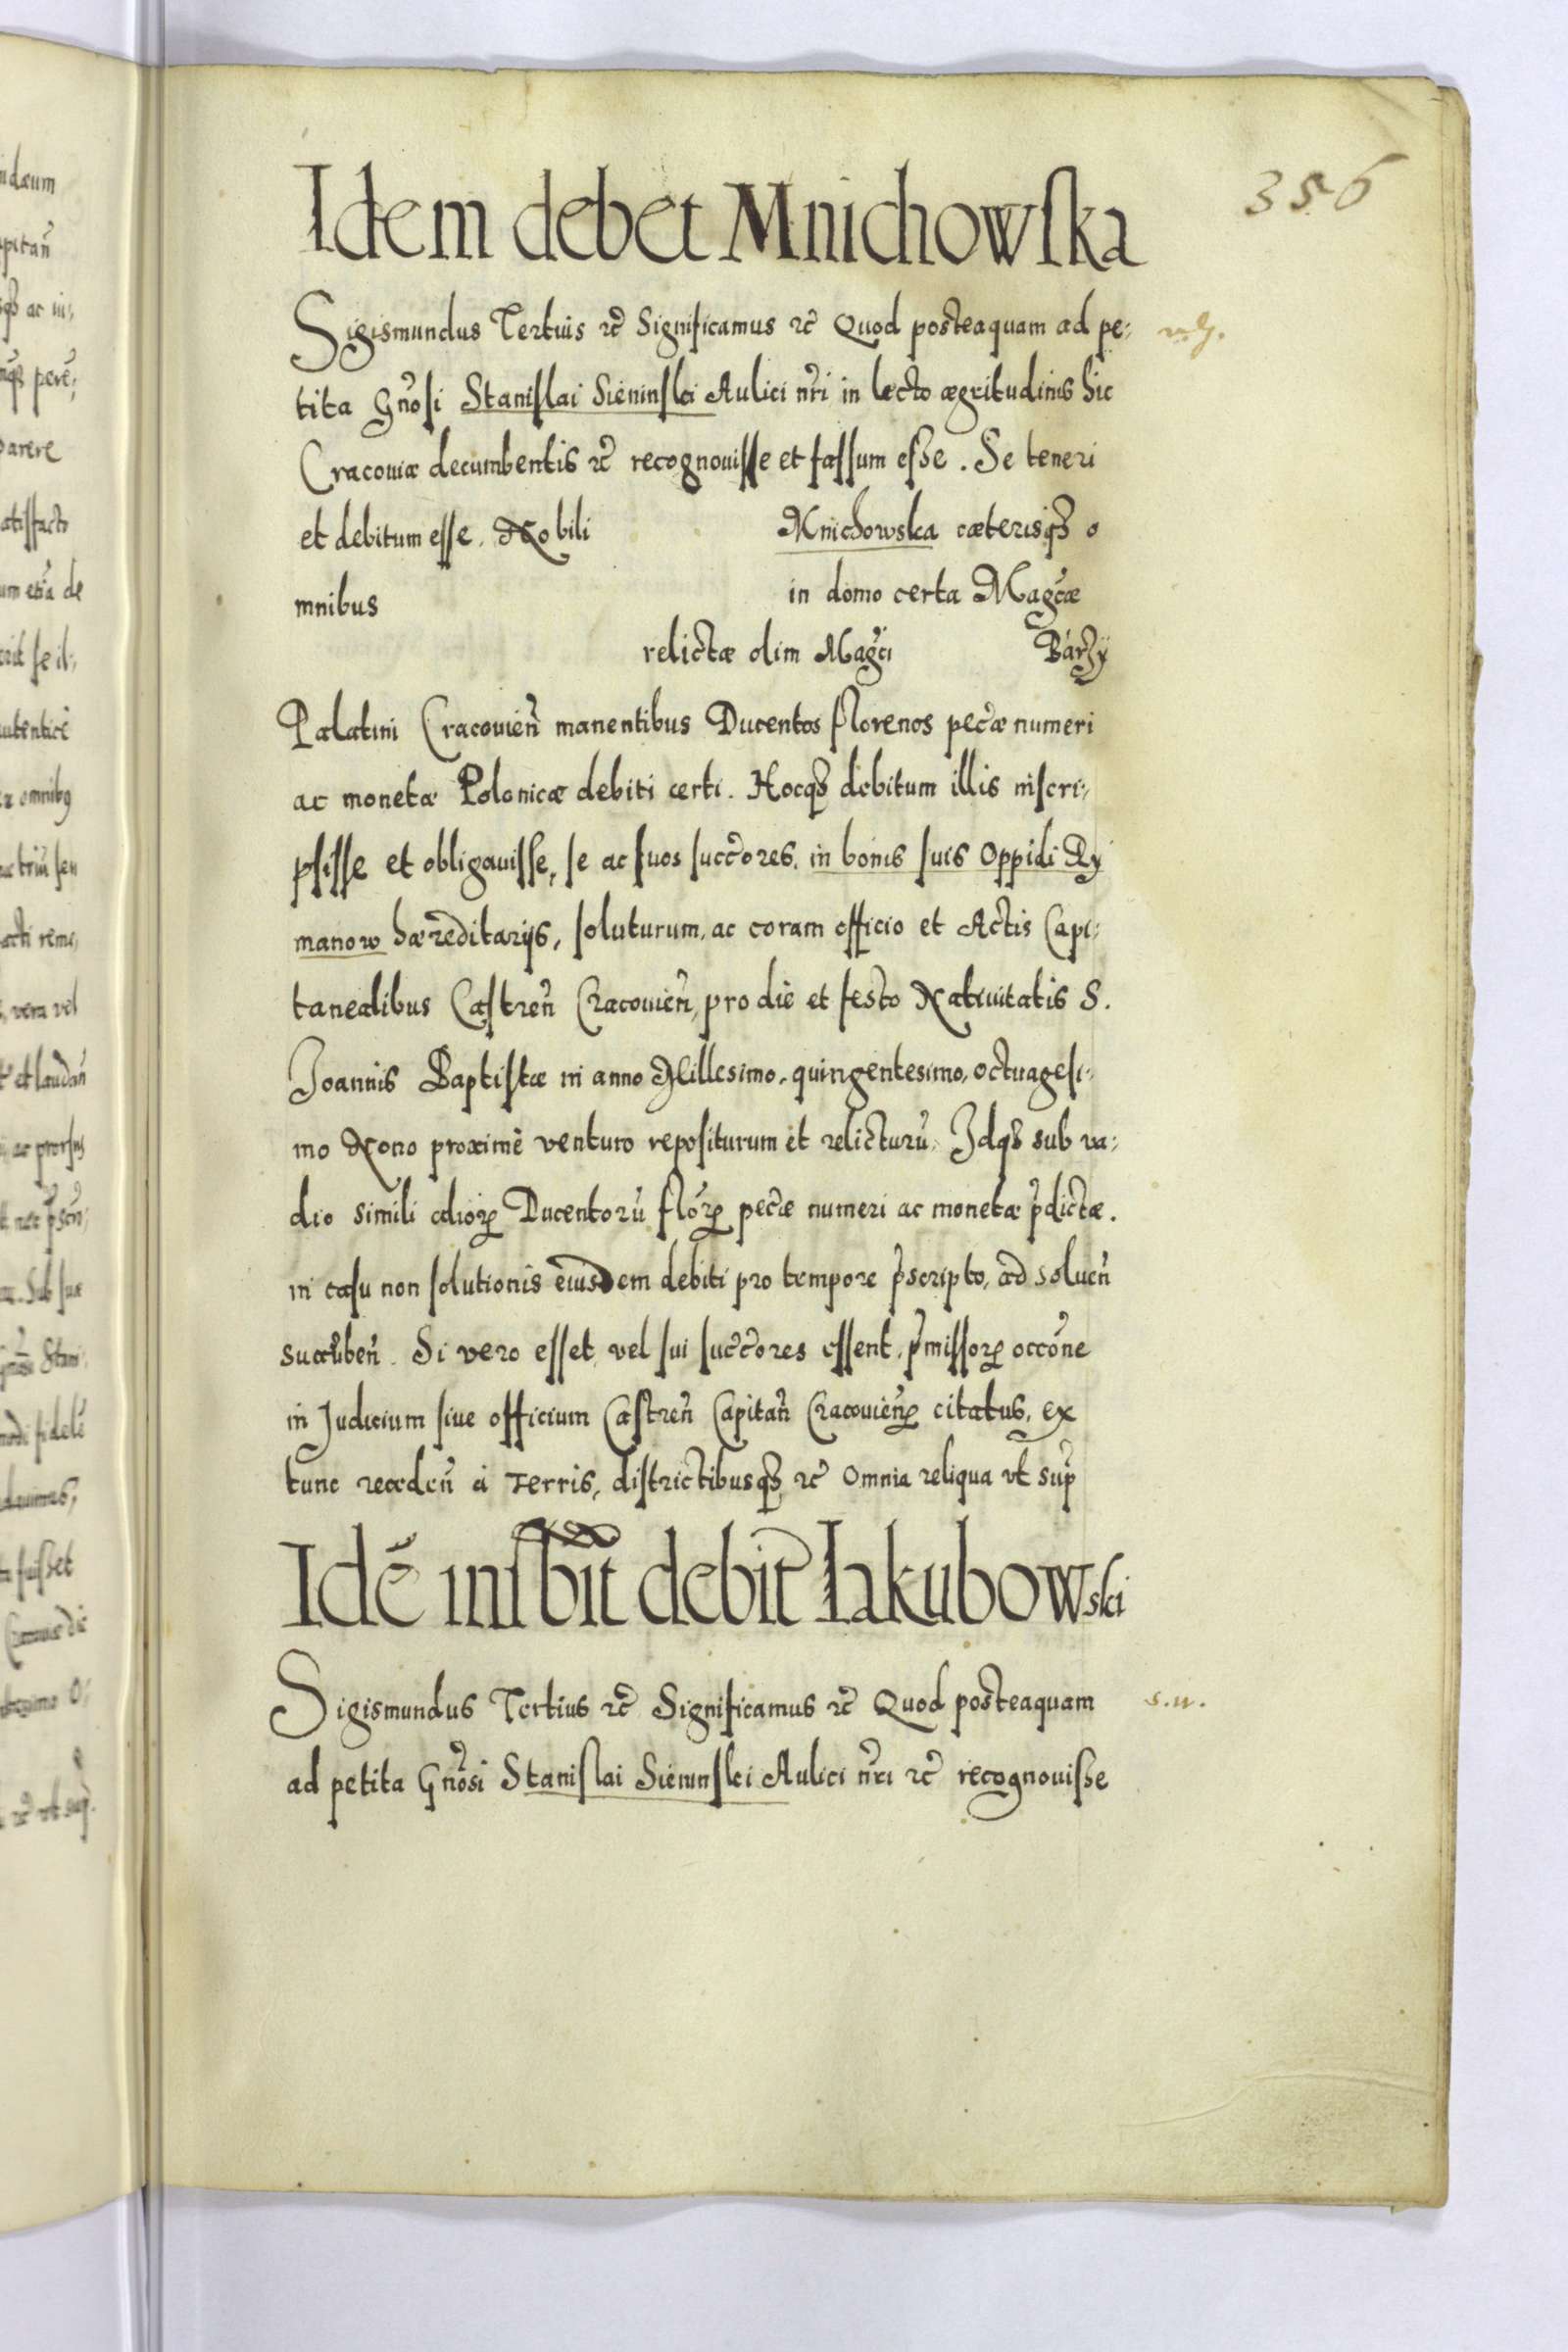 356
Idem debet Mnichowſka
Sigismundus Tertuis ꝛc̃ Significamus ꝛc̃ Quod posteaquam ad pe:
tita Gñosi Stanislai Sieninski Aulici nr̃i in lecto ægritudinis hic
Cracoviæ decumbentis ꝛc̃ recognouisse et fassum esse. Se teneri
et debitum esse. Nobili Mnichowska cæterisqꝫ o
mnibus in domo certa Magc̃æ
relictæ olim Magc̃i Barzÿ
Palatini Cracovieñ manentibus Ducentos florenos pec̃æ numeri
ac monetæ Polonicæ debiti certi. Hocqꝫ debitum illis inscri:
psisse et obligauisse, se ac suos succ̃ores. in bonis suis Oppidi Ry
manow hæreditarijs, soluturum, ac coram officio et Actis Capi:
tanealibus Castreñ Cracovieñ, pro die et festo Natiuitatis S.
Joannis Baptistæ in anno Millesimo, quingentesimo, octuagesi:
mo Nono proximè venturo repositurum et relicturũ. Idqꝫ sub va:
dio simili aliorꝝ Ducentorũ flõrꝝ pec̃æ numeri ac monetæ p̃dictæ.
in casu non solutionis eiusdem debiti pro tempore p̃scripto, ad solueñ
succũbeñ. Si vero esset, vel sui succ̃ores essent, p̃missorꝝ occõne
in Judicium siue officium Castreñ Capitañ Cracovieñꝝ citatus, ex
tunc recedeñ à Terris, districtibusqꝫ ꝛc̃ Omnia reliqua vt sup̃
Idẽ inſbit̃ debit̃ Iakubowski
Sigismundus Tertius ꝛc̃ Significamus ꝛc̃ Quod posteaquam
s.n.
ad petita Gñosi Stanislai Sieninski Aulici nr̃i ꝛc̃ recognouisse